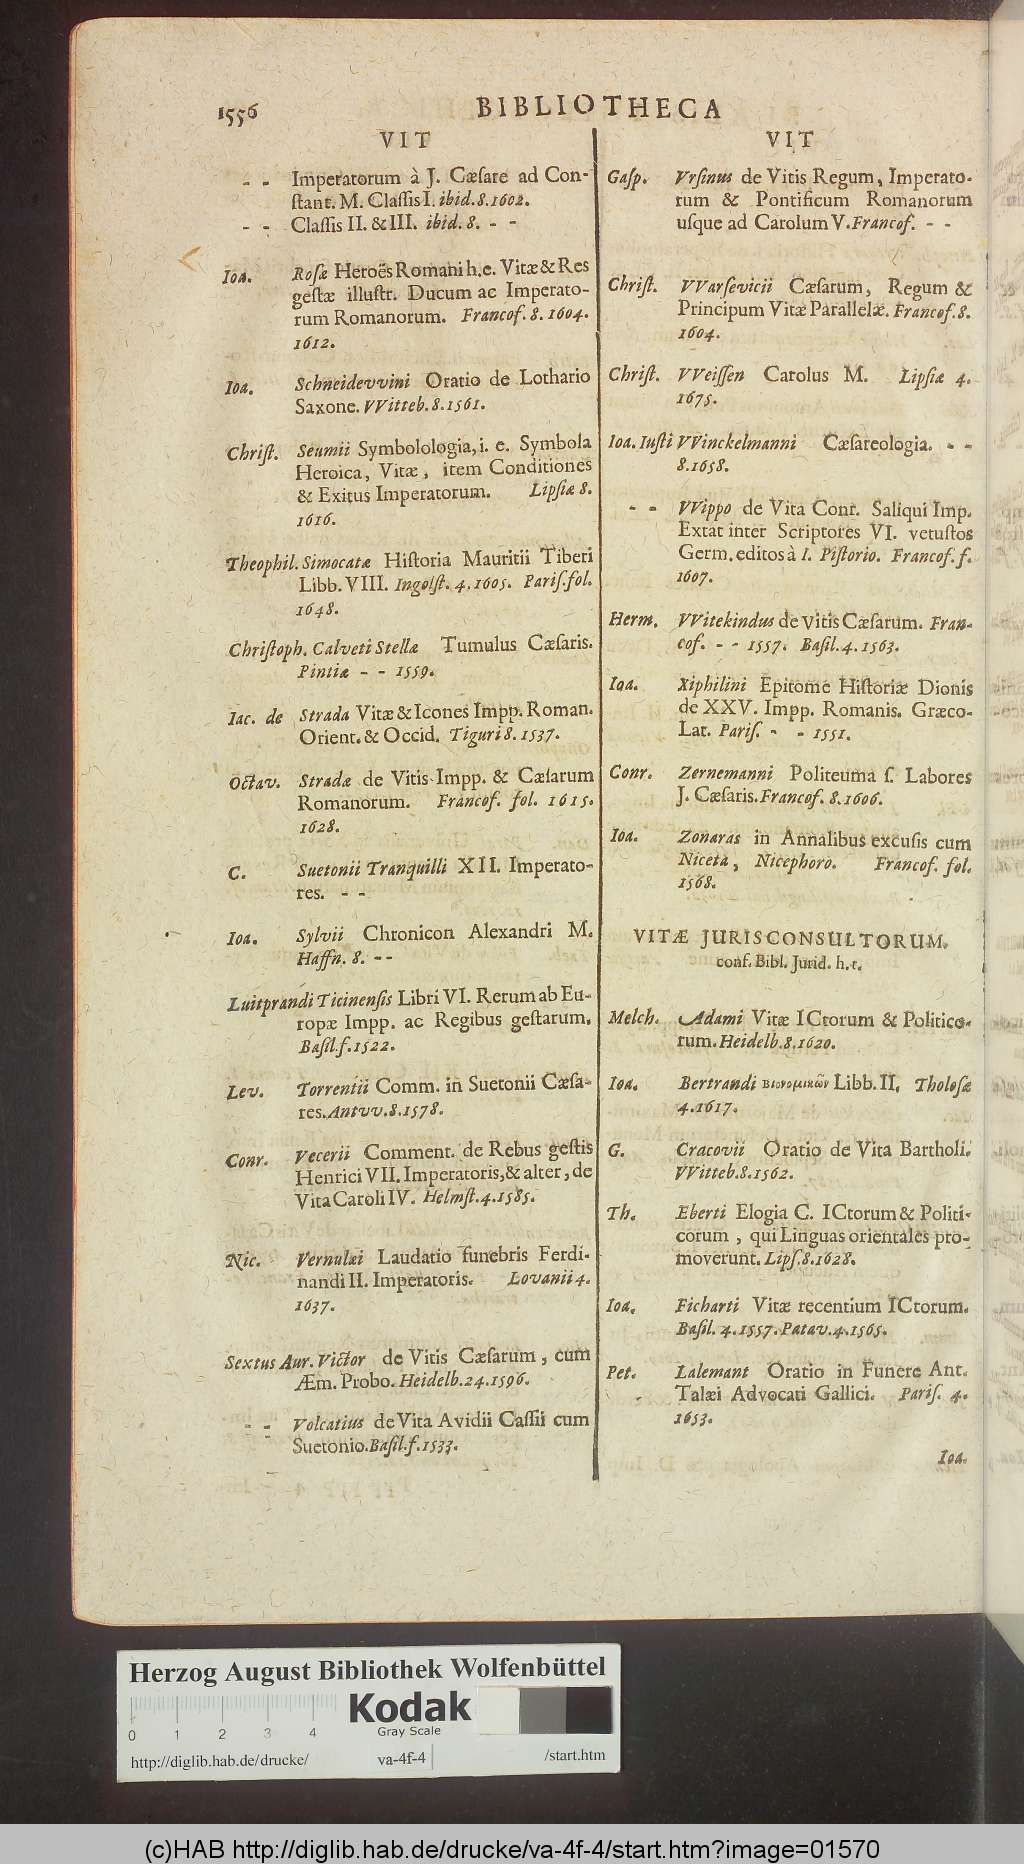 1556 BIBLIOTHECA
VIT
- - Imperatorum à J. Cæſare ad Con-
ſtant. M. Claſſis I. ibid. 8. 1602.
- - Claſſis II. & III. ibid. 8. - -
Ioa. Roſæ Heroës Romani h.e. Vitæ & Res
geſtæ illuſtr. Ducum ac Imperato-
rum Romanorum. Francof. 8. 1604.
1612.
Ioa. Schneidevvini Oratio de Lothario
Saxone. VVitteb. 8. 1561.
Chriſt. Seumii Symbolologia, i. e. Symbola
Heroica, Vitæ, item Conditiones
& Exitus Imperatorum. Lipſiæ 8.
1616.
Theophil. Simocatæ Hiſtoria Mauritii Tiberi
Libb. VIII. Ingolſt. 4. 1605. Pariſ. fol.
1648.
Chriſtoph. Calveti Stellæ Tumulus Cæſaris.
Pintiæ - - 1559.
Iac. de Strada Vitæ & Icones Impp. Roman.
Orient. & Occid. Tiguri 8. 1537.
Octav. Stradæ de Vitis Impp. & Cæſarum
Romanorum. Francof. fol. 1615.
1628.
C. Suetonii Tranquilli XII. Imperato-
res. - -
Ioa. Sylvii Chronicon Alexandri M.
Haffn. 8. - -
Luitprandi Ticinenſis Libri VI. Rerum ab Eu-
ropæ Impp. ac Regibus geſtarum.
Baſil. f. 1522.
Lev. Torrentii Comm. in Suetonii Cæſa-
res. Antvv. 8. 1578.
Conr. Vecerii Comment. de Rebus geſtis
Henrici VII. Imperatoris, & alter, de
Vita Caroli IV. Helmſt. 4. 1585.
Nic. Vernulæi Laudatio funebris Ferdi-
nandi II. Imperatoris. Lovanii 4.
1637.
Sextus Aur. Victor de Vitis Cæſarum, cum
Æm. Probo. Heidelb. 24. 1596.
- - Volcatius de Vita Avidii Caſſii cum
Suetonio. Baſil. f. 1533.
VIT
Gaſp. Vrſinus de Vitis Regum, Imperato-
rum & Pontificum Romanorum
uſque ad Carolum V. Francof. - -
Chriſt. VVarſevicii Cæſarum, Regum &
Principum Vitæ Parallelæ. Francof. 8.
1604.
Chriſt. VVeiſſen Carolus M. Lipſiæ 4.
1675.
Ioa. Iuſti VVinckelmanni Cæſareologia. - -
8. 1658.
- - VVippo de Vita Conr. Saliqui Imp.
Extat inter Scriptores VI. vetuſtos
Germ. editos à I. Piſtorio. Francof. f.
1607.
Herm. VVitekindus de vitis Cæſarum. Fran-
cof. - - 1557. Baſil. 4. 1563.
Ioa. Xiphilini Epitome Hiſtoriæ Dionis
de XXV. Impp. Romanis. Græco-
Lat. Pariſ. - - 1551.
Conr. Zernemanni Politeuma ſ. Labores
J. Cæſaris. Francof. 8. 1606.
Ioa. Zonaras in Annalibus excuſis cum
Niceta, Nicephoro. Francof. fol.
1568.
VITÆ JURISCONSULTORUM.
conf. Bibl. Jurid. h. t.
Melch. Adami Vitæ ICtorum & Politico-
rum. Heidelb. 8. 1620.
Ioa. Bertrandi βιονομικῶν Libb. II. Tholoſæ
4. 1617.
G. Cracovii Oratio de Vita Bartholi.
VVitteb. 8. 1562.
Th. Eberti Elogia C. ICtorum & Politi-
corum, qui Linguas orientales pro-
moverunt. Lipſ. 8. 1628.
Ioa. Ficharti Vitæ recentium ICtorum.
Baſil. 4. 1557. Patav. 4. 1565.
Pet. Lalemant Oratio in Funere Ant.
Talæi Advocati Gallici. Pariſ. 4.
1653.
Ioa.
Herzog August Bibliothek Wolfenbüttel
Kodak
Gray Scale
0 1 2 3 4
http://diglib.hab.de/drucke/ va-4f-4 /start.htm
(c)HAB http://diglib.hab.de/drucke/va-4f-4/start.htm?image=01570